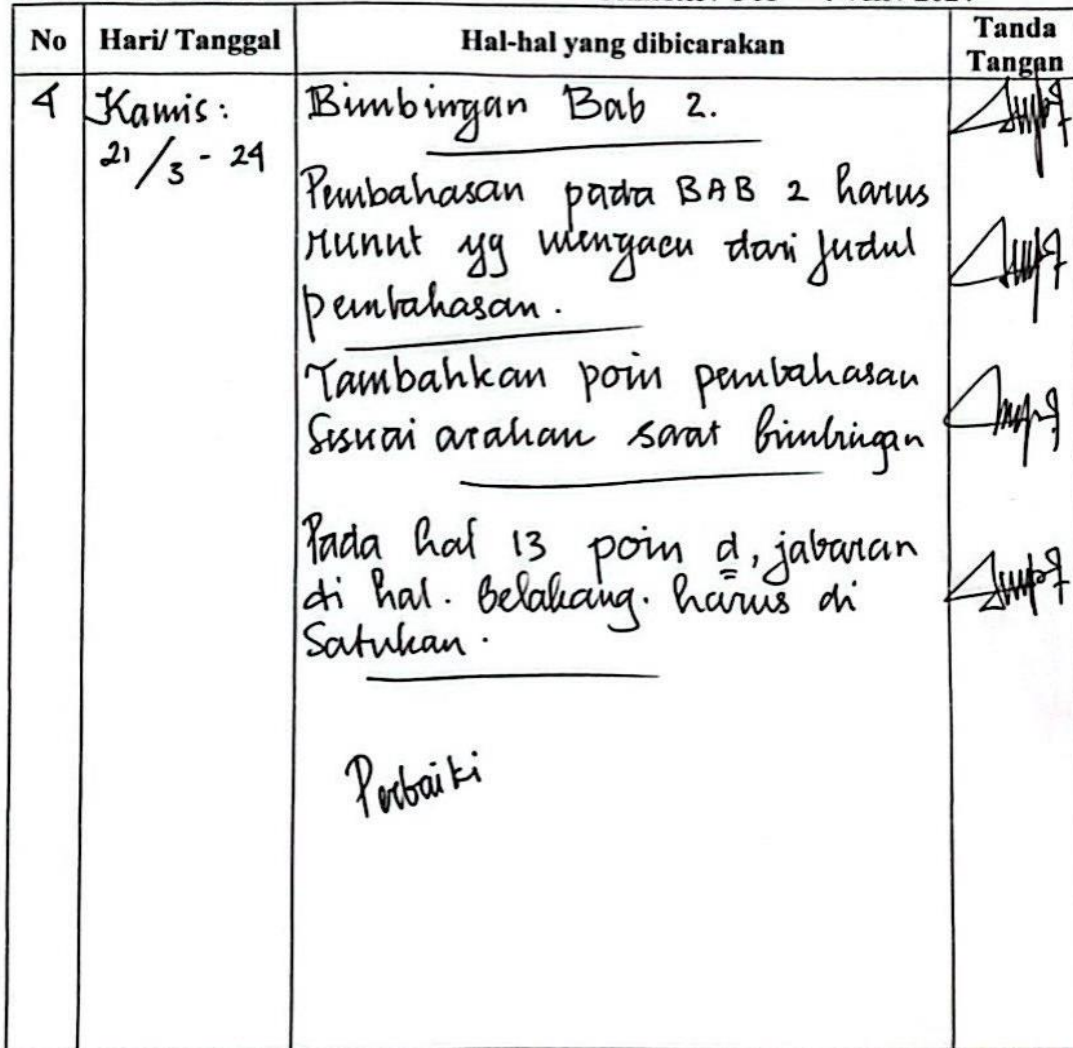 No
Hari/ Tanggal
Hal-hal yang dibicarakan
Tanda
Tangan
4
Kamis:
21/3 - 24
Bimbingan Bab 2.
Pembahasan pada BAB 2 harus
runut yg mengacu dari judul
pembahasan.
Tambahkan poin pembahasan
Sesuai arahan saat bimbingan
Pada hal 13 poin d, jabaran
di hal. Belakang. harus di
Satukan.
Perbaiki